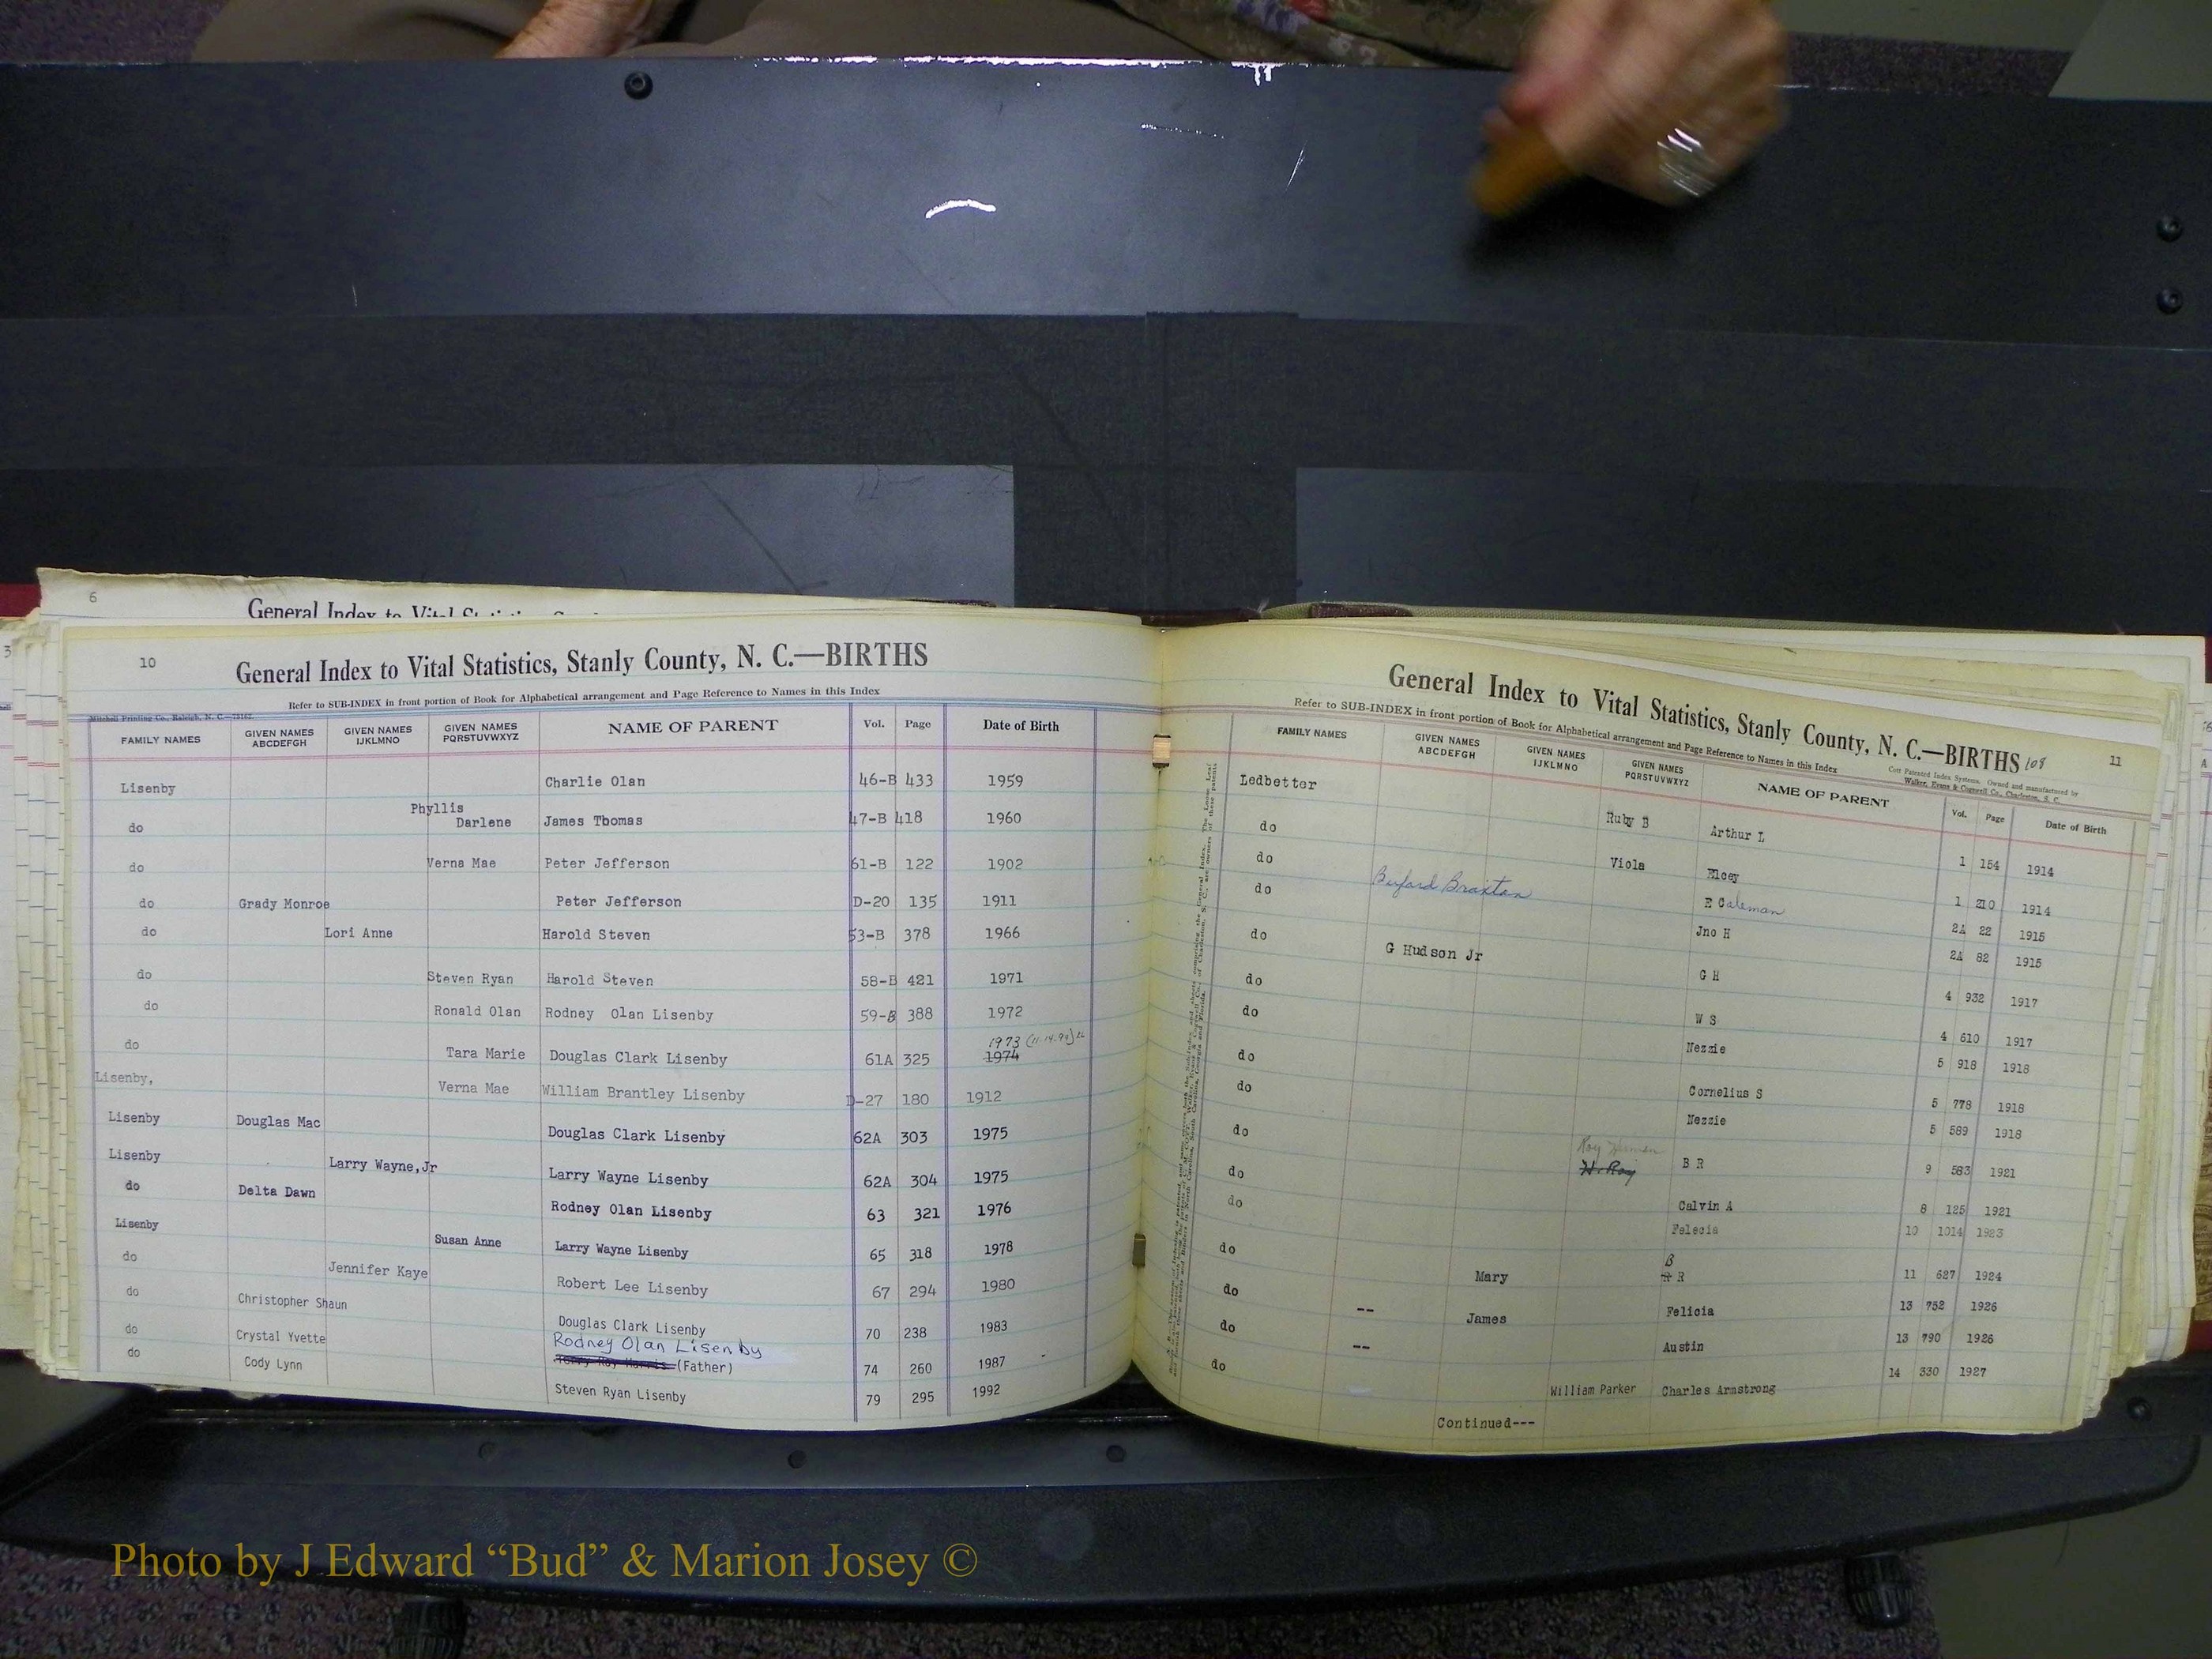 6
General Index to Vital
10
General Index to Vital Statistics, Stanly County, N. C.—BIRTHS
Refer to SUB-INDEX in front portion of Book for Alphabetical arrangement and Page Reference to Names in this Index
Mitchell Printing Co., Raleigh, N. C.
FAMILY NAMES GIVEN NAMES ABCDEFGH GIVEN NAMES IJKLMNO GIVEN NAMES PQRSTUVWXYZ NAME OF PARENT Vol. Page Date of Birth
Lisenby Charlie Olan 46-B 433 1959
do Phyllis Darlene James Thomas 47-B 418 1960
do Verna Mae Peter Jefferson 61-B 122 1902
do Grady Monroe Peter Jefferson D-20 135 1911
do Lori Anne Harold Steven 53-B 378 1966
do Steven Ryan Harold Steven 58-B 421 1971
do Ronald Olan Rodney Olan Lisenby 59-B 388 1972
do Tara Marie Douglas Clark Lisenby 61A 325 1973 1974
Lisenby, Verna Mae William Brantley Lisenby D-27 180 1912
Lisenby Douglas Mac Douglas Clark Lisenby 62A 303 1975
Lisenby Larry Wayne,Jr Larry Wayne Lisenby 62A 304 1975
do Delta Dawn Rodney Olan Lisenby 63 321 1976
Lisenby Susan Anne Larry Wayne Lisenby 65 318 1978
do Jennifer Kaye Robert Lee Lisenby 67 294 1980
do Christopher Shaun Douglas Clark Lisenby 70 238 1983
do Crystal Yvette Rodney Olan Lisenby (Father) 74 260 1987
do Cody Lynn Steven Ryan Lisenby 79 295 1992
General Index to Vital Statistics, Stanly County, N. C.—BIRTHS 108 11
Refer to SUB-INDEX in front portion of Book for Alphabetical arrangement and Page Reference to Names in this Index
Cott Patented Index Systems. Owned and manufactured by
Walker, Evans & Cogswell Co., Charleston, S. C.
FAMILY NAMES GIVEN NAMES ABCDEFGH GIVEN NAMES IJKLMNO GIVEN NAMES PQRSTUVWXYZ NAME OF PARENT Vol. Page Date of Birth
Ledbetter Ruby B Arthur L 1 154 1914
do Viola Elcey 1 210 1914
do E Caleman 2A 22 1915
do Buford Braxton Jno H 2A 82 1915
do G Hudson Jr G H 4 932 1917
do W S 4 610 1917
do Nezzie 5 918 1918
do Cornelius S 5 778 1918
do Nezzie 5 589 1918
do Roy H. Roy B R 9 583 1921
do Calvin A 8 125 1921
do Felecia 10 1014 1923
do Mary B R 11 627 1924
do -- James Felicia 13 752 1926
do -- Austin 13 790 1926
do William Parker Charles Armstrong 14 330 1927
Continued---
Photo by J Edward “Bud” & Marion Josey ©